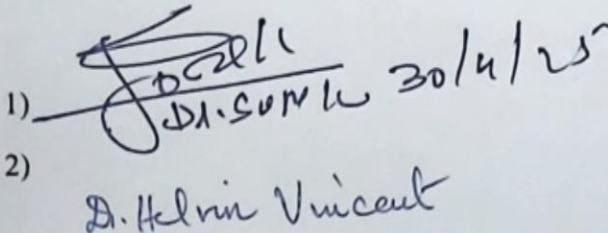 1) Dr. SUNIL 30/4/25
2)
Dr. Helvin Vincent